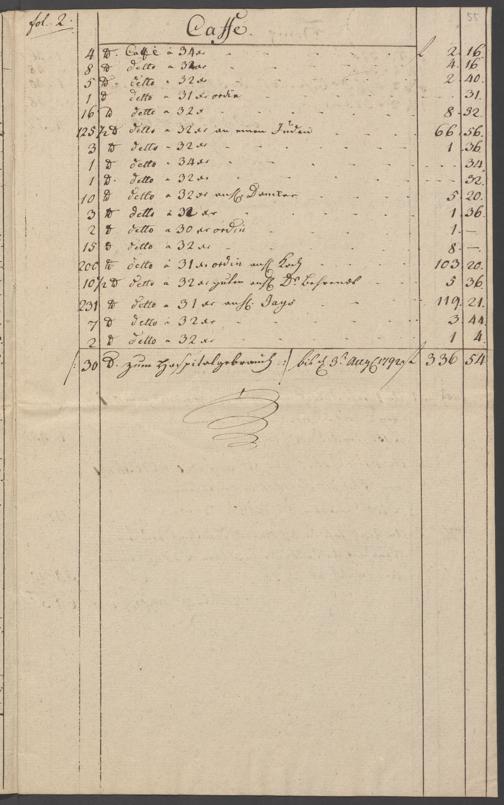 fol. 2.
Caffe.
4 ℔. Caffé à 34 xr f 2. 16.
8 ℔ detto à 32 xr 4. 16
5 ℔. detto à 32 xr 2. 40.
1 ℔ detto à 31 xr ordin 31.
16 ℔ detto à 32 xr 8. 32.
125½ ℔ detto à 32 xr an einen Juden 66. 56.
3 ℔ detto à 32 xr 1. 36
1 ℔ detto à 34 xr 34.
1 ℔. detto à 32 xr 32.
10 ℔ detto à 32 xr 5. 20.
3 ℔ detto à 32 xr 1. 36
2 ℔ detto à 30 xr ordin 1. —
15 ℔ detto à 32 xr 8. —
200 ℔ detto à 31 xr ordin Koch 103 20.
10½ ℔ detto à 32 xr 5 36
231 ℔ detto à 31 xr 119. 21.
7 ℔ detto à 32 xr 3. 44
2 ℔ detto à 32 xr 1 4.
/: 30 ℔. zum Hospitalgebrauch :/ bis d 3t 1792 f 336 54